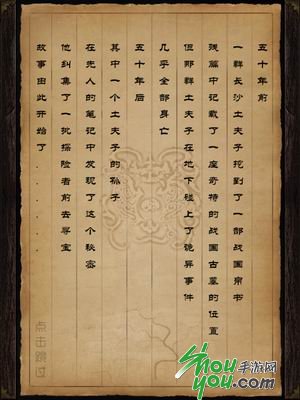 五十年前
一群长沙土夫子挖到了一部战国帛书
残篇中记载了一座奇特的战国古墓的位置
但那群土夫子在地下碰上了诡异事件
几乎全部身亡
五十年后
其中一个土夫子的孙子
在先人的笔记中发现了这个秘密
他纠集了一批探险者前去寻宝
故事由此开始了......
点击跳过
Shouyou手游网
you.com